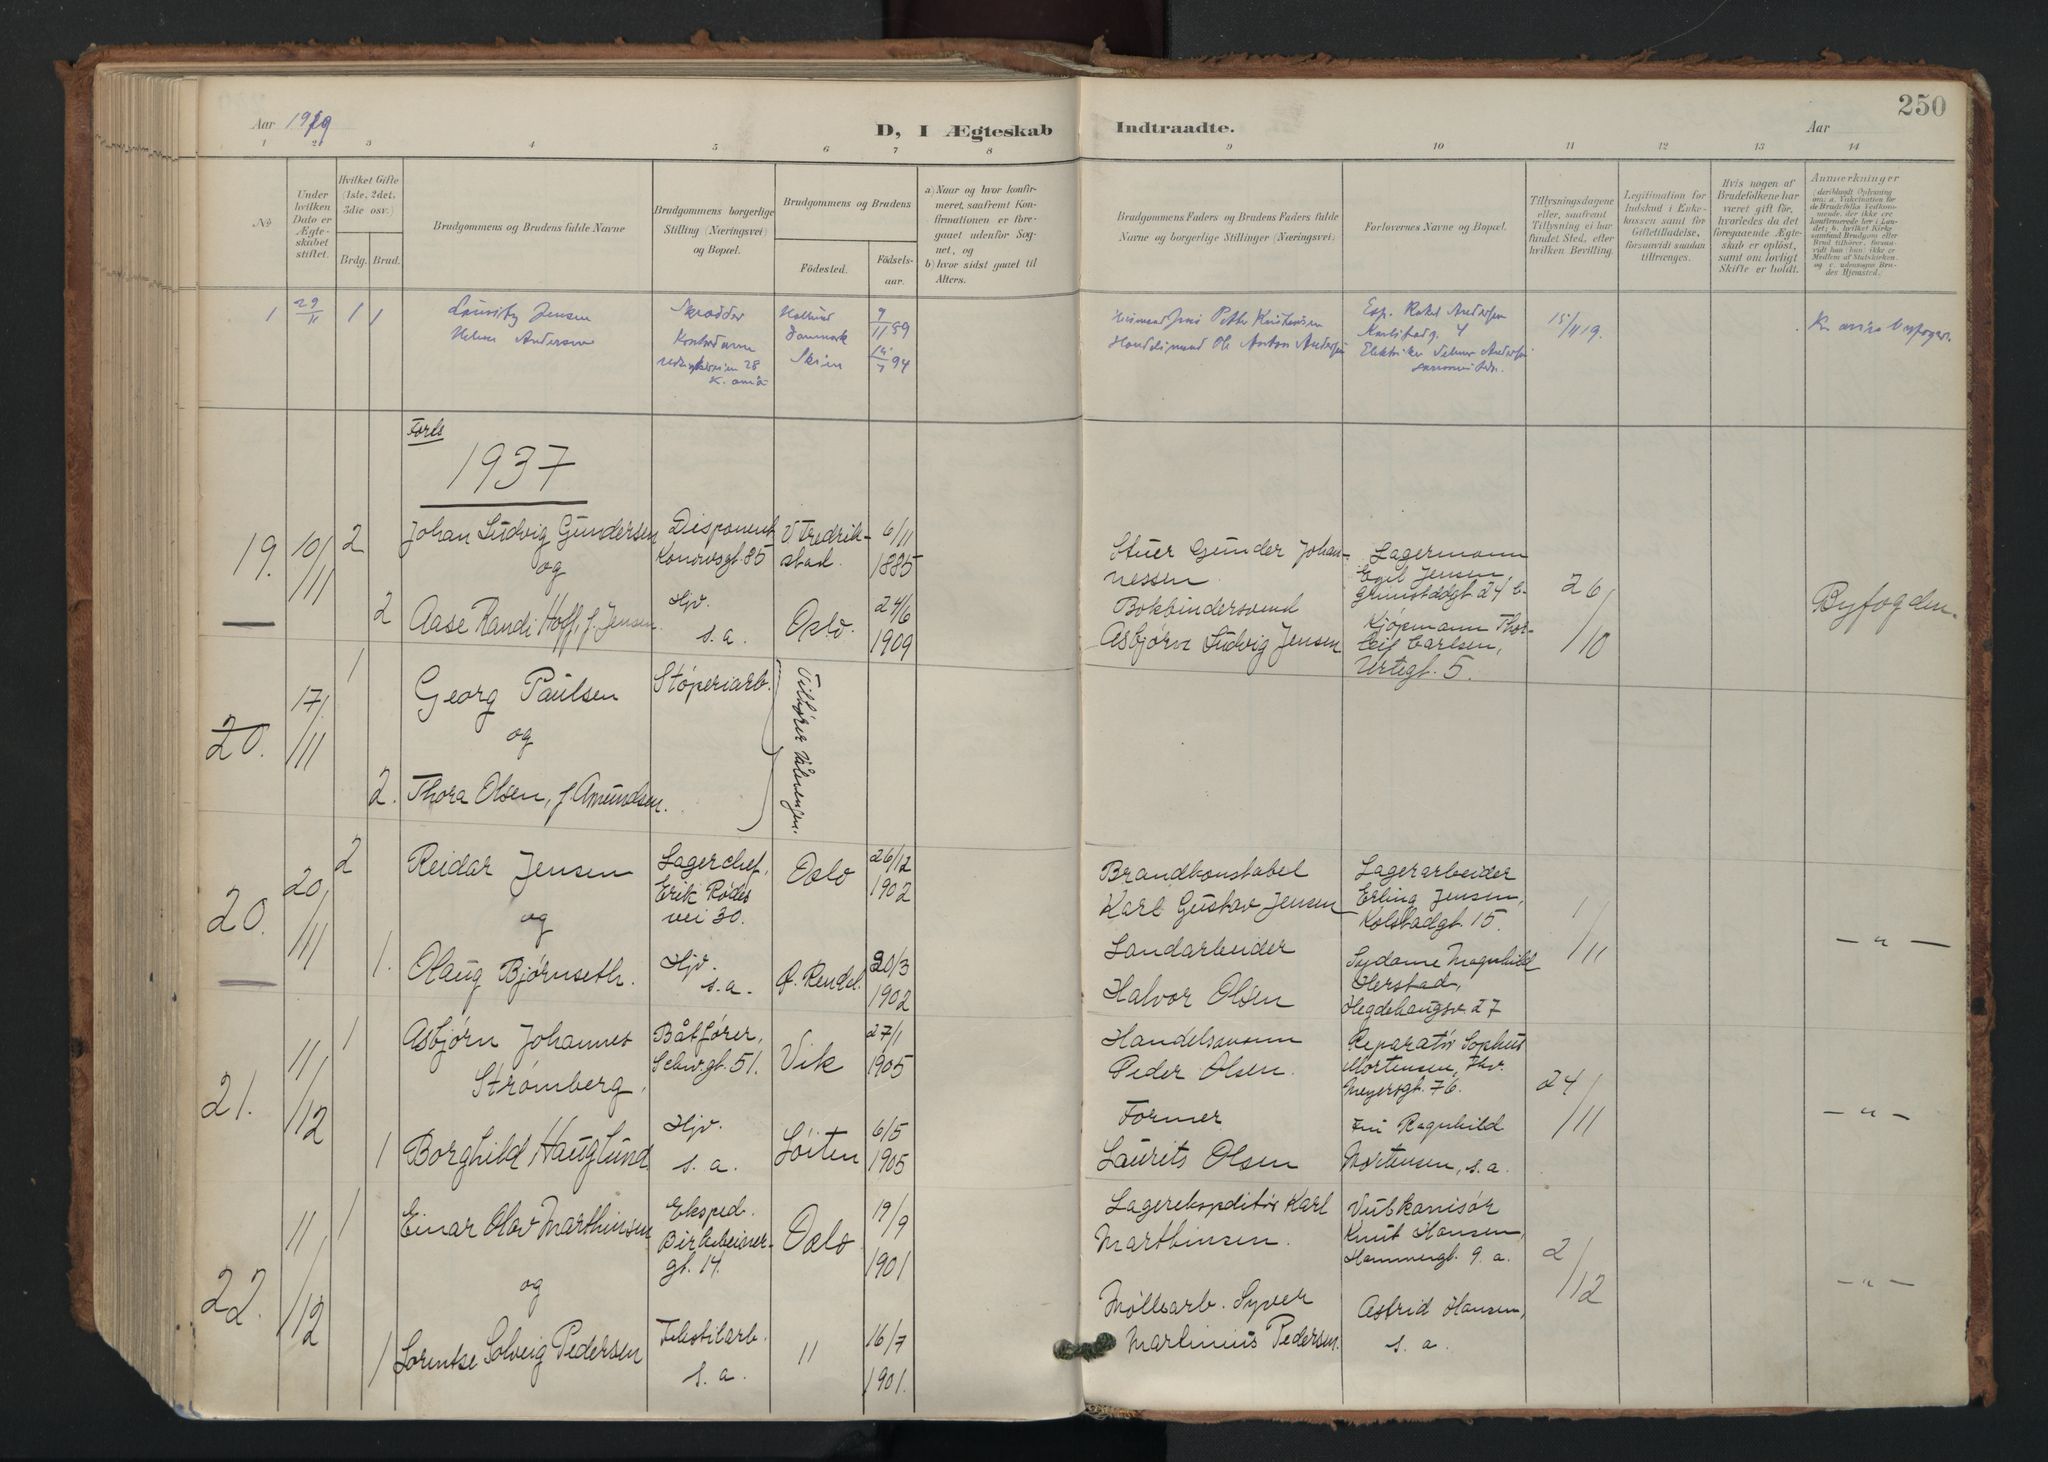 Aar 1919
D, I Ægteskab
Indtraadte.
Aar
250
1 2 3 4 5 6 7 8 9 10 11 12 13 14
No
Under hvilken Dato er Ægteskabet stiftet.
Hvilket Gifte (1ste, 2det, 3die osv.)
Brdg. Brud.
Brudgommens og Brudens fulde Navne
Brudgommens borgerlige Stilling (Næringsvei) og Bopæl.
Brudgommens og Brudens
Födested.
Födselsaar.
a) Naar og hvor konfirmeret, saafremt Konfirmationen er foregaaet udenfor Sognet, og
b) hvor sidst gaaet til Alters.
Brudgommens Faders og Brudens Faders fulde Navne og borgerlige Stillinger (Næringsvei)
Forlovernes Navne og Bopæl.
Tillysningsdagene eller, saafremt Tillysning ei har fundet Sted, efter hvilken Bevilling.
Legitimation for Indskud i Enkekassen samt for Giftetilladelse, forsaavidt saadan tiltrænges.
Hvis nogen af Brudefolkene har været gift før, hvorledes da det foregaaende Ægteskab er oplöst, samt om lovligt Skifte er holdt.
Anmærkninger
1 29/11 1 1
Lauritz Jensen
Helene Andersen
Skrædder
Danmark
Skien
9/11 89
Peter Kristensen
Handelsmand Ole Anton Andersen
Rakel Andersen
Karlstadg. 4
Elektriker Andersen
15/11 19
Forts
1937
19. 10/11 2
Johan Ludvig Gundersen
og
2 Aase Randi Hoff, f. Jensen.
Disponent
85
Hjv.
s. a.
V Fredrikstad.
Oslo.
6/11 1885
24/6 1909
Stuer Gunder Johannessen.
Bokbindersvend
Asbjørn Ludvig Jensen
Lagermann
Egil Jensen,
Grimstadgt. 24 b.
Kjøpmann Thorleif Carlsen,
Urtegt. 5.
26/10
Byfogden.
20. 17/11 1
Georg Paulsen
og
2. Thora Olsen, f. Amundsen.
Støperiarb.
Tilhører Vålerengen.
20. 20/11 2
Reidar Jensen
og
1. Olaug Bjørnseth.
Lagerchef,
Erik Rødes
vei 30.
Hjv.
s. a.
Oslo
Ø. Rendal.
26/12 1902
20/3 1902
Brandkonstabel
Karl Gustav Jensen
Landarbeider
Halvor Olsen
Lagerarbeider
Erling Jensen,
Kolstadgt. 15.
Sydame Magnhild
Herstad,
Hegdehaugsv. 27
1/11
— " —
21. 11/12 1
Asbjørn Johannes
Strømberg,
1 Borghild Hauglund
Båtfører,
Schw.gt. 51.
Hjv.
s. a.
Vik
Løiten
27/1 1905
6/5 1905
Handelsmann
Peder Olsen.
Former
Laurits Olsen
Reparatør Sophus
Mortensen, Thv.
Meyersgt. 76.
Fru Ragnhild
Mortensen, s. a.
24/11
— " —
22. 11/12 1
Einar Olav Marthinsen
og
1 Lorentse Solveig Pedersen
Eksped.
Birkebeinergt. 14.
Tekstilarb.
s. a.
Oslo
"
19/9 1901
16/7 1901.
Lagerekspeditør Karl
Marthinsen.
Møllearb. Syver
Martinius Pedersen.
Vulkanisør
Knut Hansen,
Hammergt. 9 a.
Astrid Hansen,
s. a.
2/12
— " —